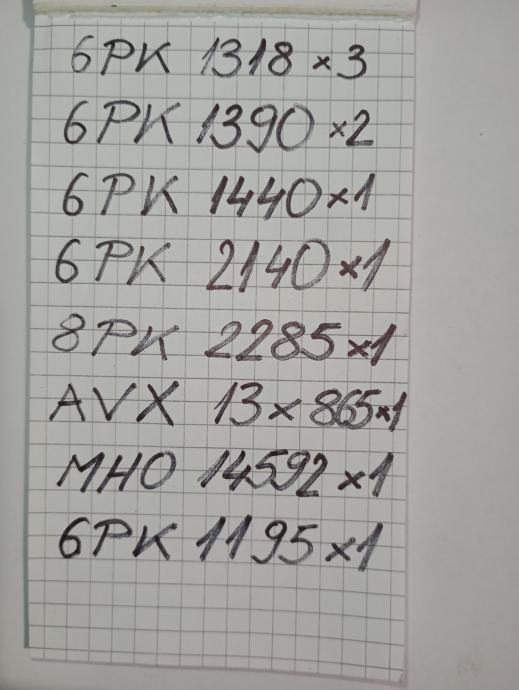 6PK 1318 × 3
6PK 1390 × 2
6PK 1440 × 1
6PK 2140 × 1
8PK 2285 × 1
AVX 13 × 865 × 1
MHO 14592 × 1
6PK 1195 × 1